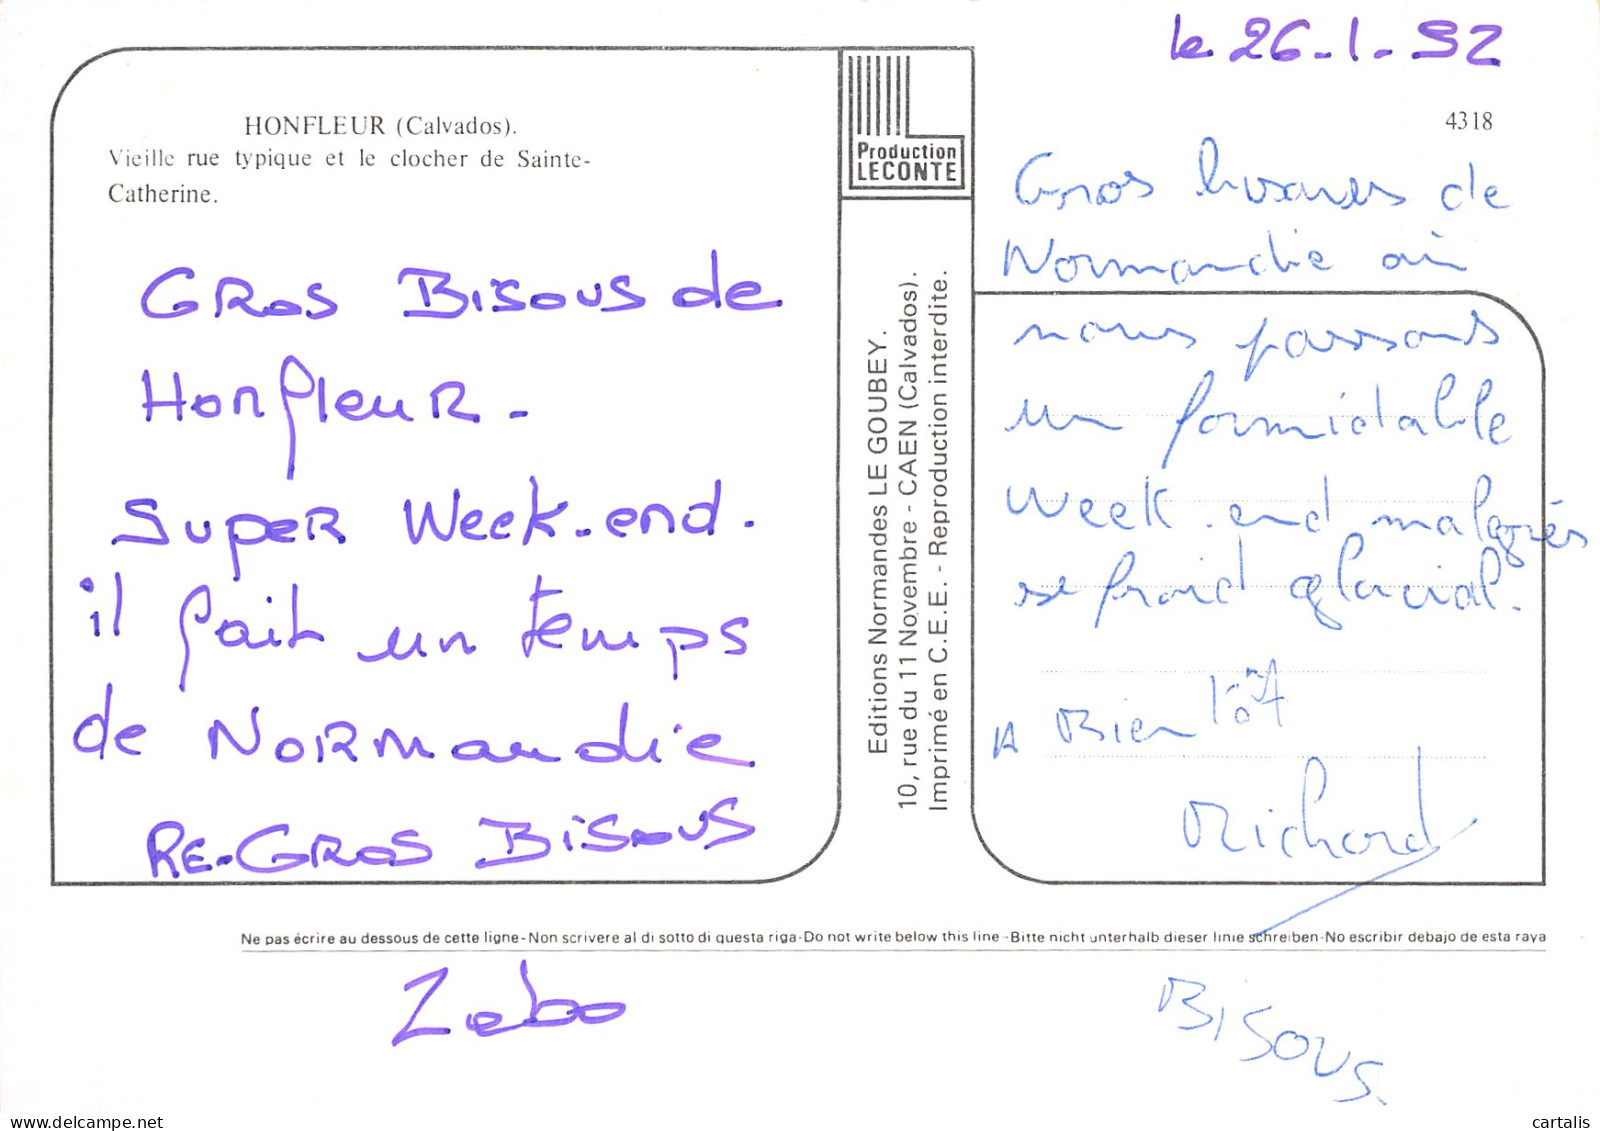 HONFLEUR (Calvados).
Vieille rue typique et le clocher de Sainte-
Catherine.
GROS BISOUS de
HonfleuR -
SupeR Week-end.
il fait un temps
de NoRmandie
RE-GROS BISOUS
Zebo
Production
LECONTE
Editions Normandes LE GOUBEY.
10, rue du 11 Novembre - CAEN (Calvados).
Imprimé en C.E.E. - Reproduction interdite.
le 26-1-92
4318
Gros de
Normandie où
nous passons
un formidable
week-end malgrès
se froid glacial.
A Bien tôt
Richard
Ne pas écrire au dessous de cette ligne-Non scrivere al di sotto di questa riga-Do not write below this line-Bitte nicht unterhalb dieser linie schreiben-No escribir debajo de esta raya
BISOUS.
delcampe.net
cartalis